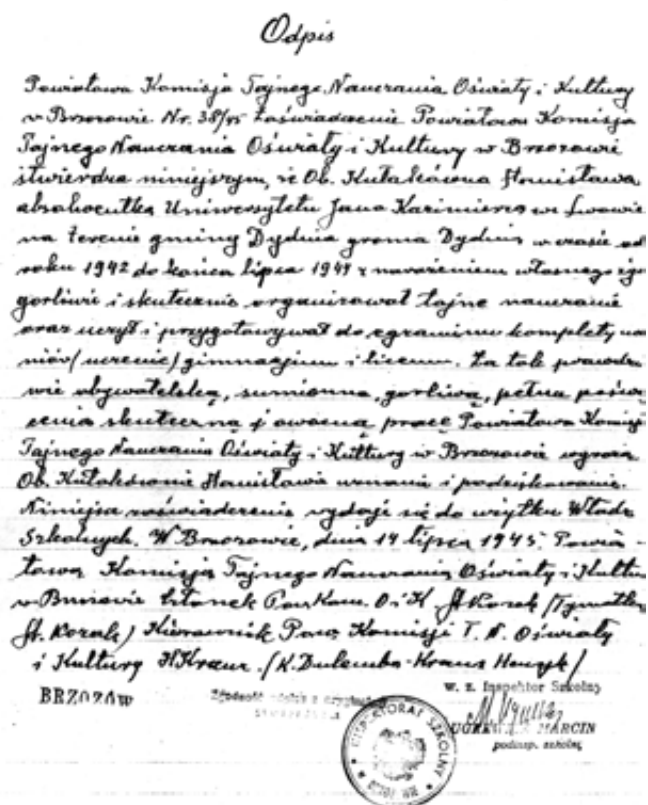 Odpis
Powiatowa Komisja Tajnego Nauczania Oświaty i Kultury
w Brzozowie Nr. 38/45 Zaświadczenie Powiatowa Komisja
Tajnego Nauczania Oświaty i Kultury w Brzozowie
stwierdza niniejszym, że Ob. Kułakówna Stanisława
absolwentka Uniwersytetu Jana Kazimierza we Lwowie
na terenie gminy Dydnia groma Dydnia w czasie od
roku 1942 do końca lipca 1944 z narażeniem własnego życi
gorliwie i skutecznie organizował tajne nauczanie
oraz uczył i przygotowywał do egzaminu komplety ucz
niów (uczenic) gimnazjum i liceum. Za tak prawdzi
wie obywatelską, sumienną, gorliwą, pełną poświę
cenia skuteczną i owocną pracę Powiatowa Komisja
Tajnego Nauczania Oświaty i Kultury w Brzozowie wyraża
Ob. Stanisławie uznanie i podziękowanie.
Niniejsze zaświadczenie wydaje się do użytku Władz
Szkolnych. W Brzozowie, dnia 14 lipca 1945. Powia-
towa Komisja Tajnego Nauczania Oświaty i Kultu
w Brzozowie Członek Pow. Kom. O i K St. Kozak
St. Kozak) Kierownik Pow. Komisji T. N. Oświaty
i Kultury H Kranz. (K. Dulemba-Kranz Henryk)
w. z. Inspektor Szkolny
BRZOZÓW
Zgodność odpisu z oryginałem
MARCIN
podinsp. szkolny
INSPEKTORAT SZKOLNY